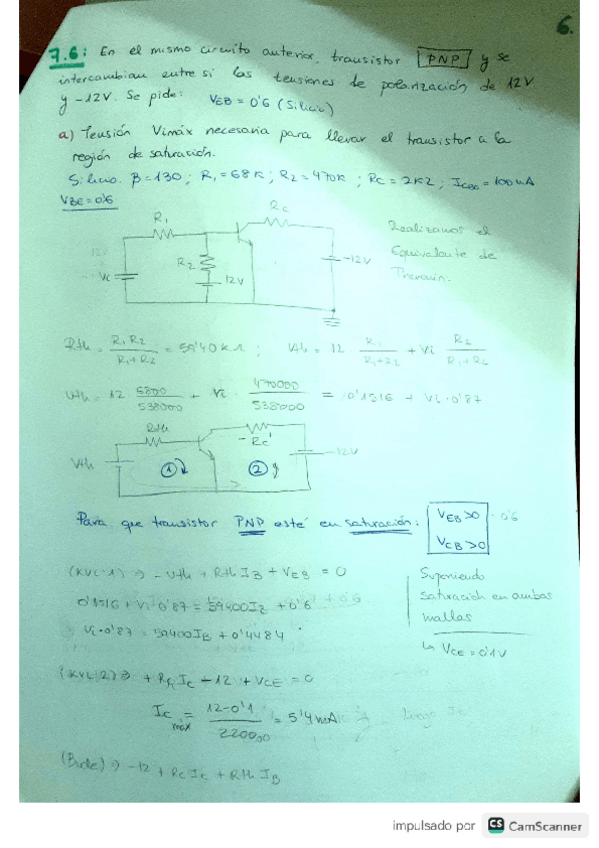 6.
7.6: En el mismo circuito anterior, transistor PNP y se
intercambian entre si las tensiones de polarización de 12V
y -12V. Se pide: VEB = 0'6 (Silicio)
a) Tensión Vimáx necesaria para llevar el transistor a la
región de saturación.
Silicio. β=130; R1=68K; R2=470K; Rc=2K2; ICBO=100nA
VBE=0'6
R1
Rc
R2
12V
-12V
Realizamos el
Equivalente de
Thevenin.
Rth = R1 R2 / R1+R2 = 59'40 K ; Vth = 12 R1 / R1+R2 + Vi R2 / R1+R2
Vth = 12 6800 / 538000 + Vi · 470000 / 538000 = 0'1516 + Vi·0'87
Rth
Rc
Vth
1
2
-12V
Para que transistor PNP esté en saturación:
VEB>0
0'6
VCB>0
(KVL 1) ⇒ -Vth + Rth IB + VEB = 0
0'1516 + Vi·0'87 = 59400IB + 0'6
Vi·0'87 = 59400IB + 0'4484
Suponiendo
saturación en ambas
mallas
↳ VCE = 0'1V
(KVL 2) ⇒ + Rc Ic - 12 + VCE = 0
Ic máx = 12-0'1 / = 5'4mA
⇒ -12 + Rc Ic + Rth IB
impulsado por CS CamScanner